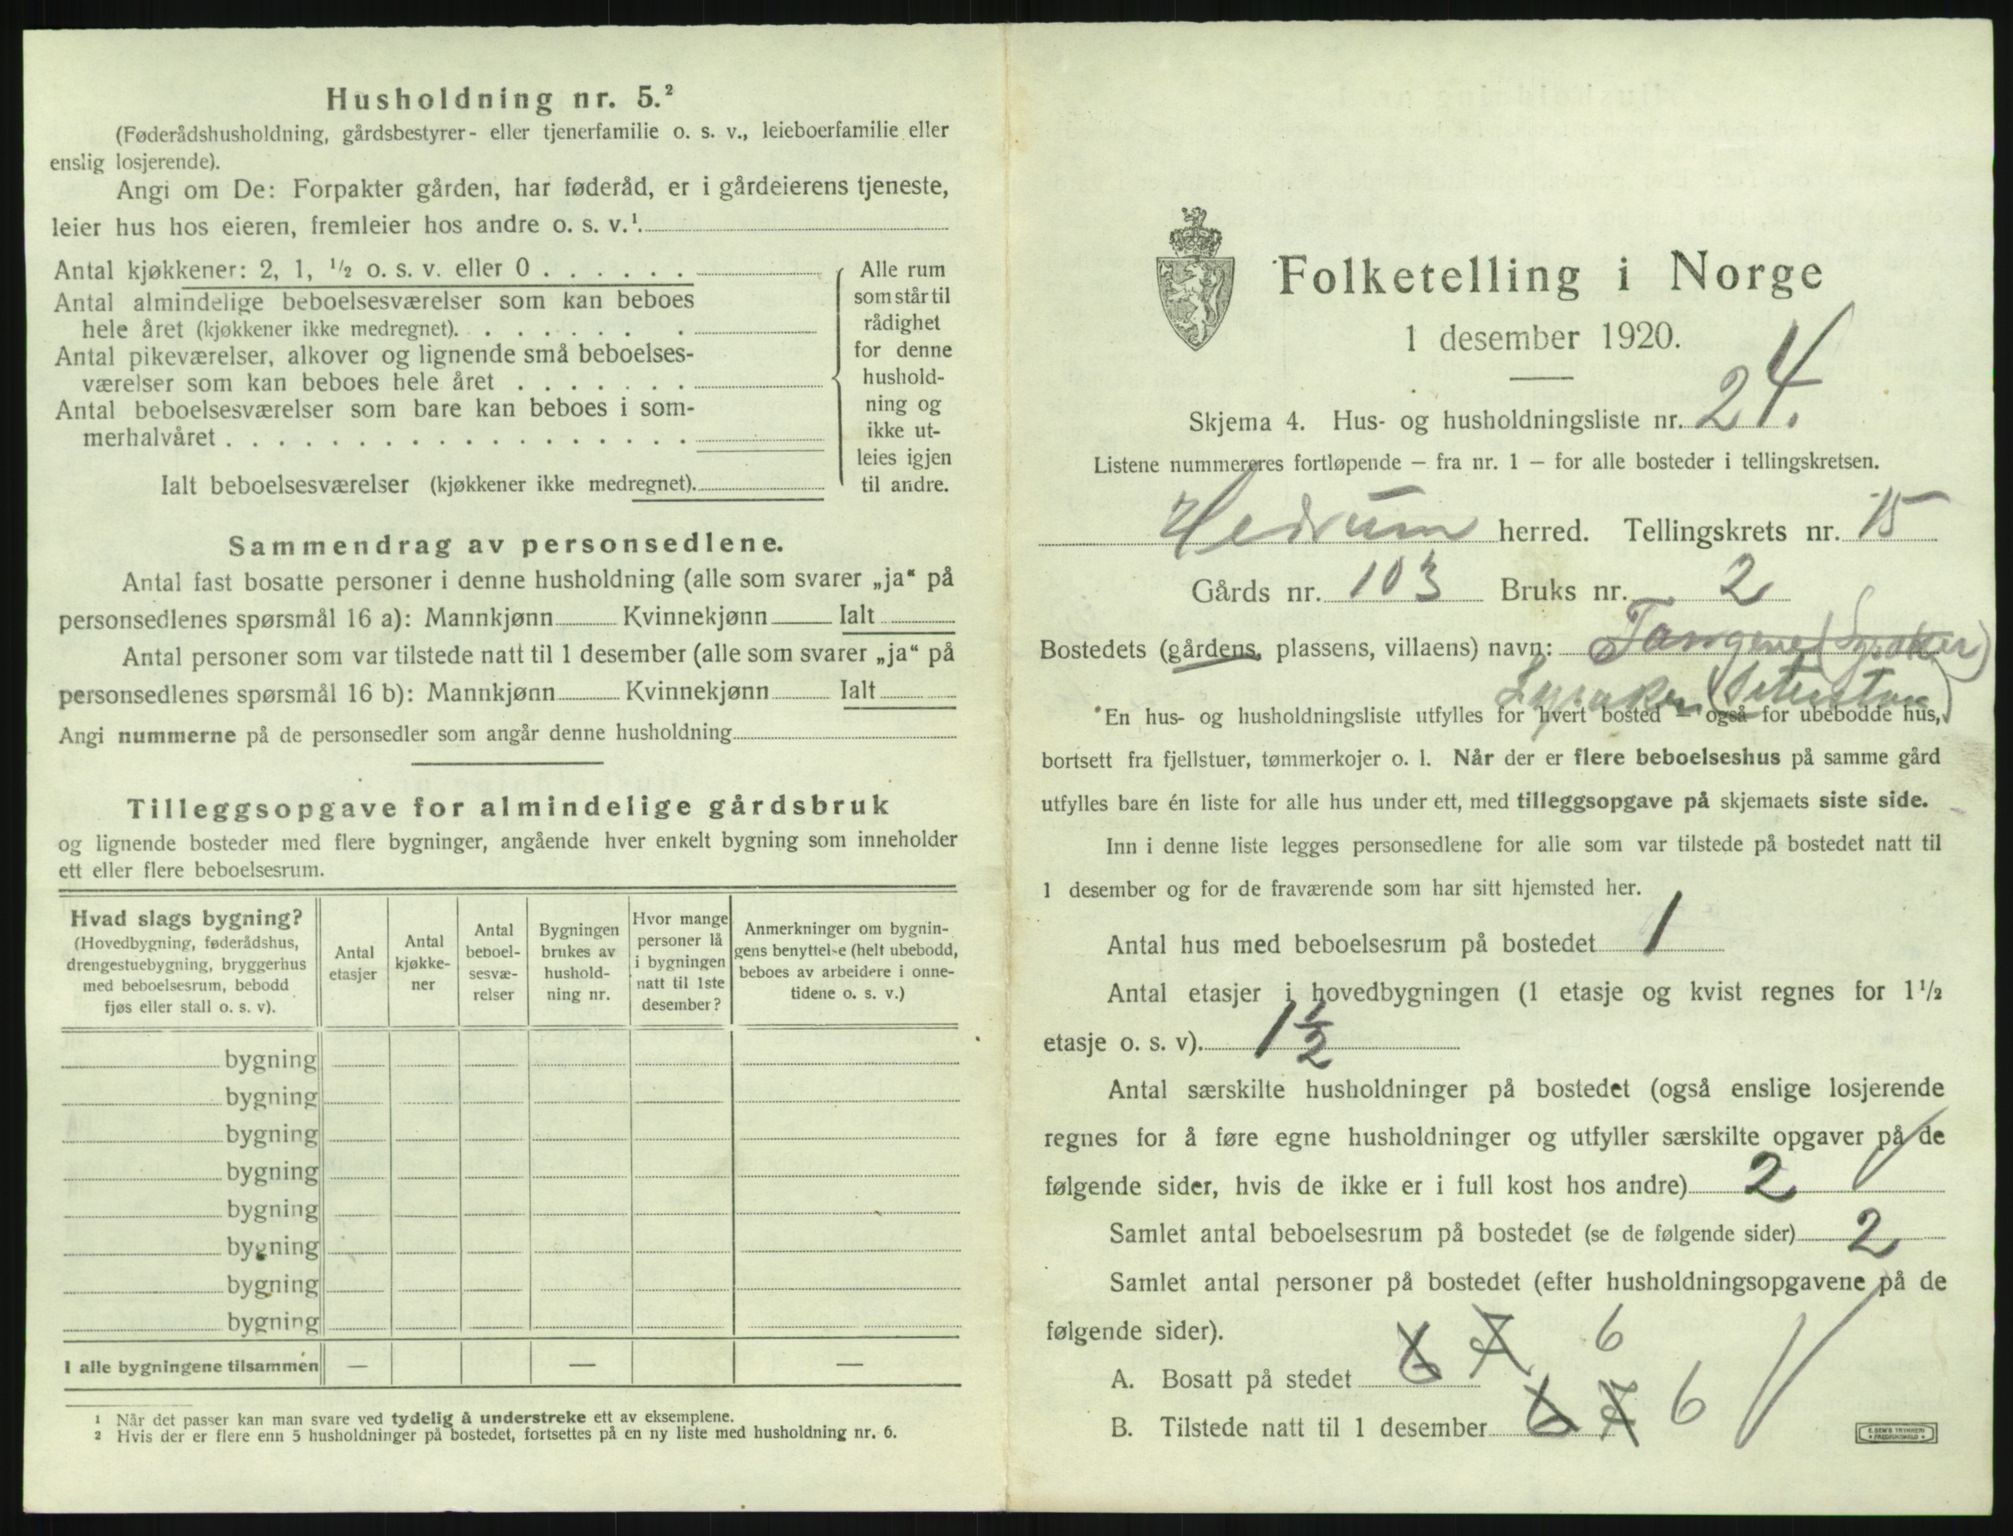 Husholdning nr. 5.²
(Føderådshusholdning, gårdsbestyrer- eller tjenerfamilie o. s. v., leieboerfamilie eller
enslig losjerende).
Angi om De: Forpakter gården, har føderåd, er i gårdeierens tjeneste,
leier hus hos eieren, fremleier hos andre o. s. v.¹
Antal kjøkkener: 2, 1, ½ o. s. v. eller 0
Antal almindelige beboelsesværelser som kan beboes
hele året (kjøkkener ikke medregnet).
Antal pikeværelser, alkover og lignende små beboelses-
værelser som kan beboes hele året
Antal beboelsesværelser som bare kan beboes i som-
merhalvåret
Alle rum
som står til
rådighet
for denne
hushold-
ning og
ikke ut-
leies igjen
til andre.
Ialt beboelsesværelser (kjøkkener ikke medregnet).
Sammendrag av personsedlene.
Antal fast bosatte personer i denne husholdning (alle som svarer „ja“ på
personsedlenes spørsmål 16 a): Mannkjønn Kvinnekjønn Ialt
Antal personer som var tilstede natt til 1 desember (alle som svarer „ja“ på
personsedlenes spørsmål 16 b): Mannkjønn Kvinnekjønn Ialt
Angi nummerne på de personsedler som angår denne husholdning
Tilleggsopgave for almindelige gårdsbruk
og lignende bosteder med flere bygninger, angående hver enkelt bygning som inneholder
ett eller flere beboelsesrum.
Hvad slags bygning?
(Hovedbygning, føderådshus,
drengestuebygning, bryggerhus
med beboelsesrum, bebodd
fjøs eller stall o. s. v).
Antal
etasjer
Antal
kjøkke-
ner
Antal
beboel-
sesvæ-
relser
Bygningen
brukes av
hushold-
ning nr.
Hvor mange
personer lå
i bygningen
natt til 1ste
desember?
Anmerkninger om bygnin-
gens benyttelse (helt ubebodd,
beboes av arbeidere i onne-
tidene o. s. v.)
bygning
bygning
bygning
bygning
bygning
bygning
bygning
bygning
I alle bygningene tilsammen — — —
¹ Når det passer kan man svare ved tydelig å understreke ett av eksemplene.
² Hvis der er flere enn 5 husholdninger på bostedet, fortsettes på en ny liste med husholdning nr. 6.
Folketelling i Norge
1 desember 1920.
Skjema 4. Hus- og husholdningsliste nr. 24.
Listene nummereres fortløpende – fra nr. 1 – for alle bosteder i tellingskretsen.
Hedrum herred. Tellingskrets nr. 15
Gårds nr. 103 Bruks nr. 2
Bostedets (gårdens, plassens, villaens) navn: Tangene
En hus- og husholdningsliste utfylles for hvert bosted – også for ubebodde hus,
bortsett fra fjellstuer, tømmerkojer o. l. Når der er flere beboelseshus på samme gård
utfylles bare én liste for alle hus under ett, med tilleggsopgave på skjemaets siste side.
Inn i denne liste legges personsedlene for alle som var tilstede på bostedet natt til
1 desember og for de fraværende som har sitt hjemsted her.
Antal hus med beboelsesrum på bostedet 1
Antal etasjer i hovedbygningen (1 etasje og kvist regnes for 1½
etasje o. s. v). 1½
Antal særskilte husholdninger på bostedet (også enslige losjerende
regnes for å føre egne husholdninger og utfyller særskilte opgaver på de
følgende sider, hvis de ikke er i full kost hos andre) 2
Samlet antal beboelsesrum på bostedet (se de følgende sider) 2
Samlet antal personer på bostedet (efter husholdningsopgavene på de
følgende sider).
A. Bosatt på stedet 6 7 6
B. Tilstede natt til 1 desember 6 7 6